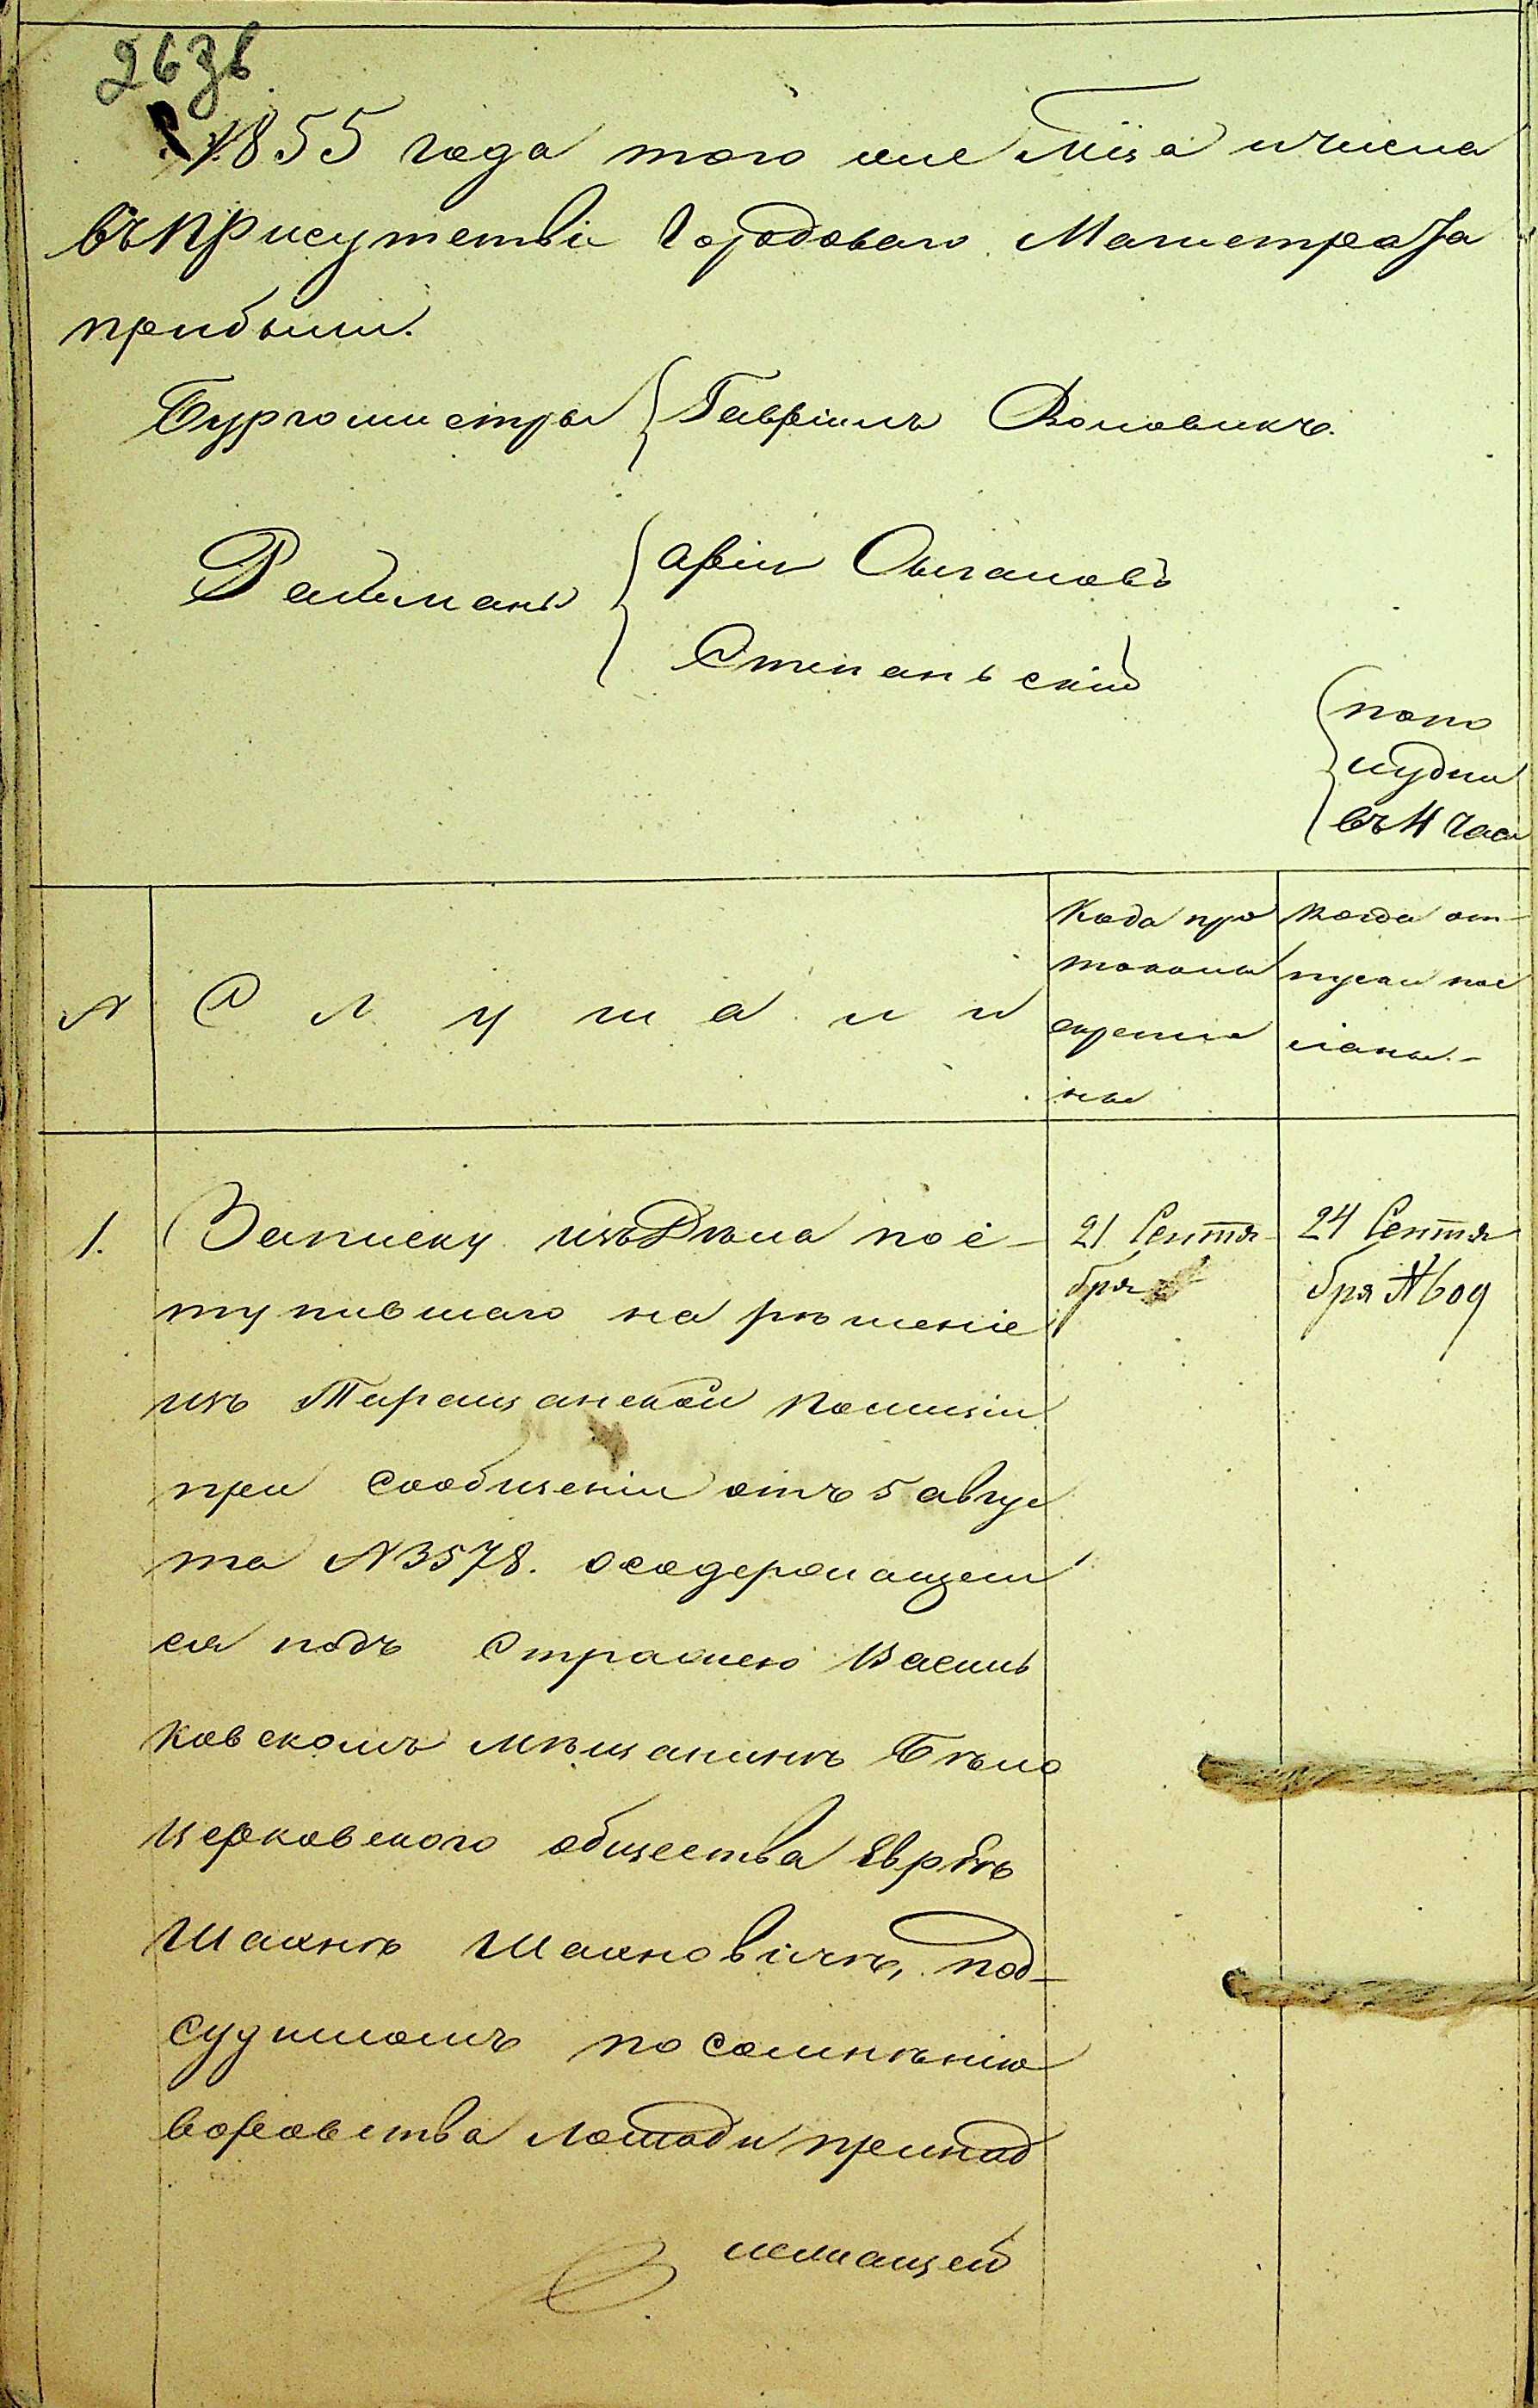 263в
1855 года того же Мца и числа
въ присутствіи Городоваго Магистрата
прибыли.
Бургомистры Гавріилъ Воловикъ.
Ратманы
Степаньскій
попо
лудни
въ 4 часа
№
Слушали
Кода про
токолы
скрепле
ны
Когда от-
пуски пос
ланы.-
1.
Записку изъ Дѣла пос-
тупившаго на рѣшеніе
изъ Таращанской Полиціи
при сообщеніи отъ 5 авгус
та №3578. о содержащем
ся подъ Стражею Василь
ковскомъ мѣщанинѣ Бѣло
церковского общества Еврѣѣ
Шахнѣ Шахновичѣ, под-
судимомъ по сомнѣнію
воровства лошади принад
лежащей
21 Сентя-
бря
24 Сентя
бря № 609